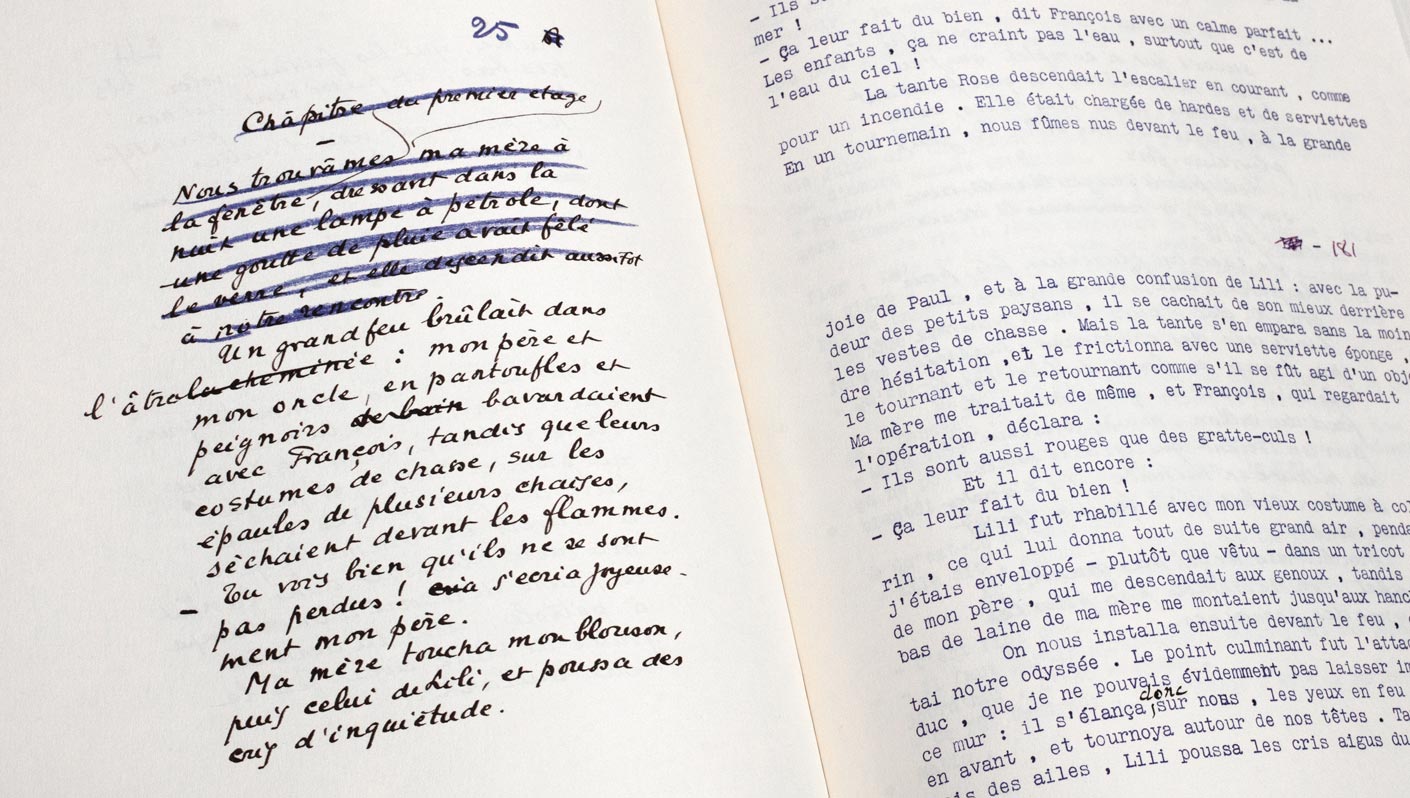 25
Châpitre du premier etage
Nous trouvâmes ma mère à
la fenêtre, dressant dans la
nuit une lampe à petrole, dont
une goutte de pluie avait fêlé
le verre, et elle descendit aussitot
à notre rencontre
Un grand feu brûlait dans
l'âtre la cheminée : mon père et
mon oncle, en pantoufles et
peignoirs de bain bavardaient
avec François, tandis que leurs
costumes de chasse, sur les
épaules de plusieurs chaises,
séchaient devant les flammes.
— Tu vois bien qu'ils ne se sont
pas perdus ! cria s'ecria joyeuse-
ment mon père.
Ma mère toucha mon blouson,
puis celui de Lili, et poussa des
cris d'inquiétude.
- Ils
mer !
- Ça leur fait du bien , dit François avec un calme parfait ...
Les enfants , ça ne craint pas l'eau , surtout que c'est de
l'eau du ciel !
La tante Rose descendait l'escalier en courant , comme
pour un incendie . Elle était chargée de hardes et de serviettes
En un tournemain , nous fûmes nus devant le feu , à la grande
- 181
joie de Paul , et à la grande confusion de Lili : avec la pu-
deur des petits paysans , il se cachait de son mieux derrière
les vestes de chasse . Mais la tante s'en empara sans la moin
dre hésitation ,et le frictionna avec une serviette éponge ,
le tournant et le retournant comme s'il se fût agi d'un obj
Ma mère me traitait de même , et François , qui regardait
l'opération , déclara :
- Ils sont aussi rouges que des gratte-culs !
Et il dit encore :
- Ça leur fait du bien !
Lili fut rhabillé avec mon vieux costume à col
rin , ce qui lui donna tout de suite grand air , penda
j'étais enveloppé - plutôt que vêtu - dans un tricot
de mon père , qui me descendait aux genoux , tandis
bas de laine de ma mère me montaient jusqu'aux hanc
On nous installa ensuite devant le feu ,
tai notre odyssée . Le point culminant fut l'atta
duc , que je ne pouvais évidemment pas laisser im
ce mur : il s'élança donc sur nous , les yeux en feu
en avant , et tournoya autour de nos têtes . Ta
is des ailes , Lili poussa les cris aigus du